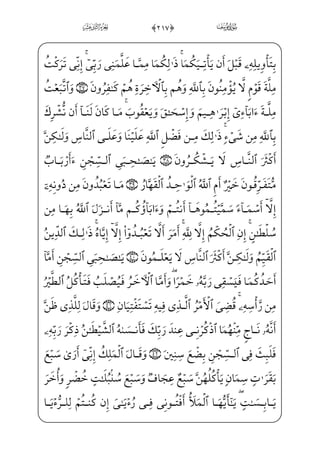 الجزء الثاني عشر ﴿٢١٧﴾ سورة يوسف
بِتَأْوِيلِهِۦ قَبْلَ أَن يَأْتِيَكُمَا ۚ ذَٰلِكُمَا مِمَّا عَلَّمَنِى رَبِّىٓ ۚ إِنِّى تَرَكْتُ
مِلَّةَ قَوْمٍ لَّا يُؤْمِنُونَ بِٱللَّهِ وَهُم بِٱلْـَٔاخِرَةِ هُمْ كَـٰفِرُونَ ﴿٣٧﴾ وَٱتَّبَعْتُ
مِلَّةَ ءَابَآءِىٓ إِبْرَٰهِيمَ وَإِسْحَـٰقَ وَيَعْقُوبَ ۚ مَا كَانَ لَنَآ أَن نُّشْرِكَ
بِٱللَّهِ مِن شَىْءٍ ۚ ذَٰلِكَ مِن فَضْلِ ٱللَّهِ عَلَيْنَا وَعَلَى ٱلنَّاسِ وَلَـٰكِنَّ
أَكْثَرَ ٱلنَّاسِ لَا يَشْكُرُونَ ﴿٣٨﴾ يَـٰصَـٰحِبَىِ ٱلسِّجْنِ ءَأَرْبَابٌ
مُّتَفَرِّقُونَ خَيْرٌ أَمِ ٱللَّهُ ٱلْوَٰحِدُ ٱلْقَهَّارُ ﴿٣٩﴾ مَا تَعْبُدُونَ مِن دُونِهِۦٓ
إِلَّآ أَسْمَآءً سَمَّيْتُمُوهَآ أَنتُمْ وَءَابَآؤُكُم مَّآ أَنزَلَ ٱللَّهُ بِهَا مِن
سُلْطَـٰنٍ ۚ إِنِ ٱلْحُكْمُ إِلَّا لِلَّهِ ۚ أَمَرَ أَلَّا تَعْبُدُوٓا۟ إِلَّآ إِيَّاهُ ۚ ذَٰلِكَ ٱلدِّينُ
ٱلْقَيِّمُ وَلَـٰكِنَّ أَكْثَرَ ٱلنَّاسِ لَا يَعْلَمُونَ ﴿٤٠﴾ يَـٰصَـٰحِبَىِ ٱلسِّجْنِ أَمَّآ
أَحَدُكُمَا فَيَسْقِى رَبَّهُۥ خَمْرًا ۖ وَأَمَّا ٱلْـَٔاخَرُ فَيُصْلَبُ فَتَأْكُلُ ٱلطَّيْرُ
مِن رَّأْسِهِۦ ۚ قُضِىَ ٱلْأَمْرُ ٱلَّذِى فِيهِ تَسْتَفْتِيَانِ ﴿٤١﴾ وَقَالَ لِلَّذِى ظَنَّ
أَنَّهُۥ نَاجٍ مِّنْهُمَا ٱذْكُرْنِى عِندَ رَبِّكَ فَأَنسَىٰهُ ٱلشَّيْطَـٰنُ ذِكْرَ رَبِّهِۦ
فَلَبِثَ فِى ٱلسِّجْنِ بِضْعَ سِنِينَ ﴿٤٢﴾ وَقَالَ ٱلْمَلِكُ إِنِّىٓ أَرَىٰ سَبْعَ
بَقَرَٰتٍ سِمَانٍ يَأْكُلُهُنَّ سَبْعٌ عِجَافٌ وَسَبْعَ سُنۢبُلَـٰتٍ خُضْرٍ وَأُخَرَ
يَابِسَـٰتٍ ۖ يَـٰٓأَيُّهَا ٱلْمَلَأُ أَفْتُونِى فِى رُءْيَـٰىَ إِن كُنتُمْ لِلرُّءْيَا